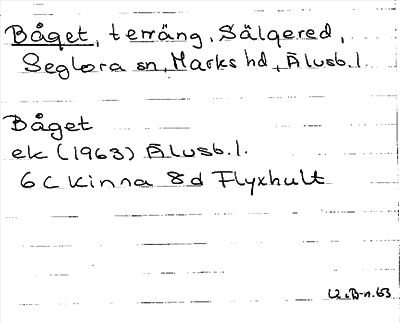 Båget, terräng, Sälgered,
Seglora sn, Marks hd, Älvsb.l.
Båget
ek (1963) Älvsb.l.
6C Kinna 8d Flyxhult